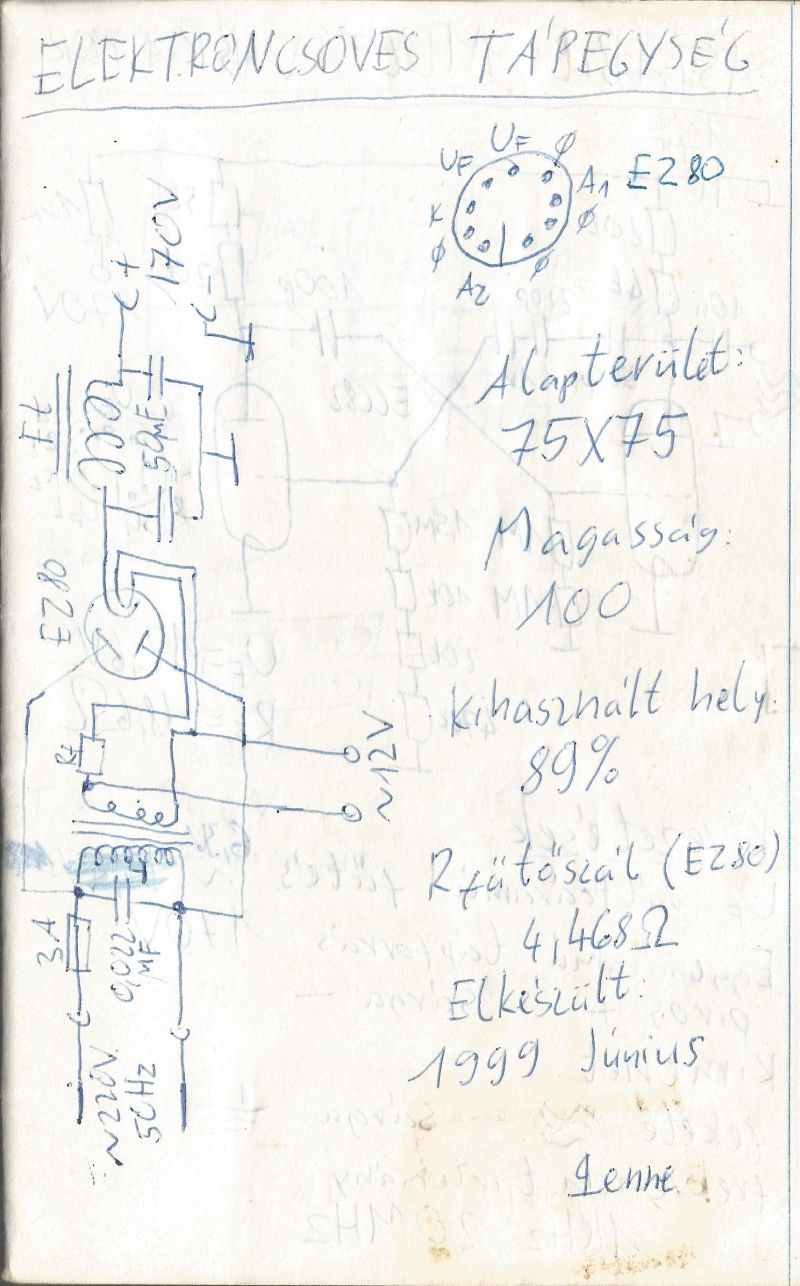 ELEKTRONCSÖVES TÁPEGYSÉG
UF UF ϕ
A1 EZ80
K ϕ
ϕ ϕ
A2
+
170V
-
Ft
50µF
EZ80
Rf
~12V
3A
0,022
µF
~220V
50Hz
Alapterület:
75X75
Magasság:
100
Kihasznált hely:
89%
R fűtőszál (EZ80)
4,468Ω
Elkészült:
1999 Június